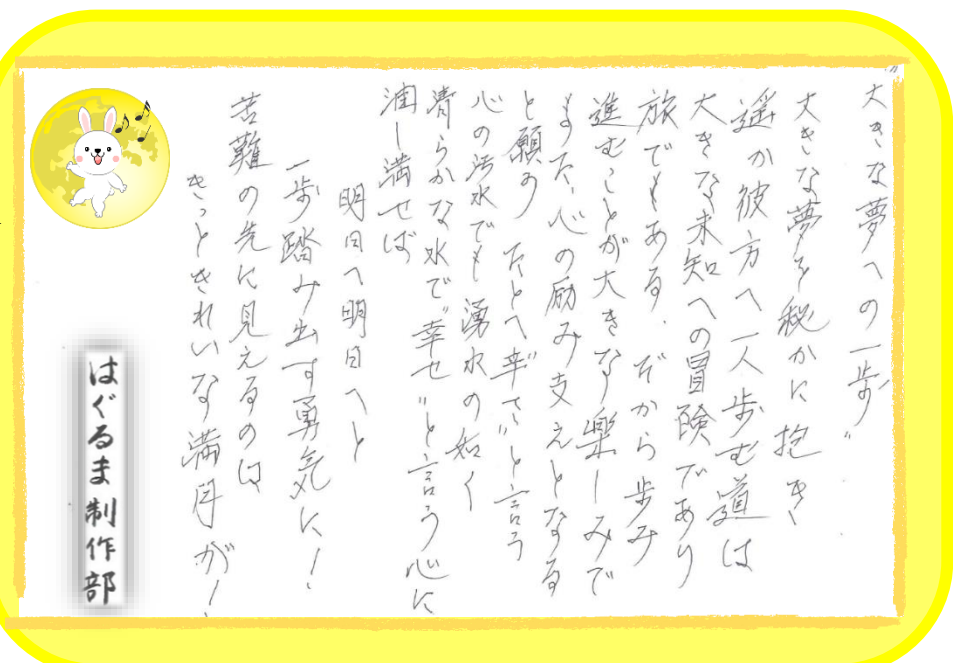 "大きな夢への一歩"
大きな夢を秘かに抱き
遥か彼方へ一人歩む道は
大きな未知への冒険であり
旅でもある.だから歩み
進むことが大きな楽しみで
もまた、心の励み支えとなる
と願う たとへ"辛さ"と言う
心の汚水でも湧水の如く
清らかな水で"幸せ"と言う心に
潤し満せば
明日へ明日へと
一歩踏み出す勇気に!
苦難の先に見えるのは
きっときれいな満月が!
はぐるま制作部